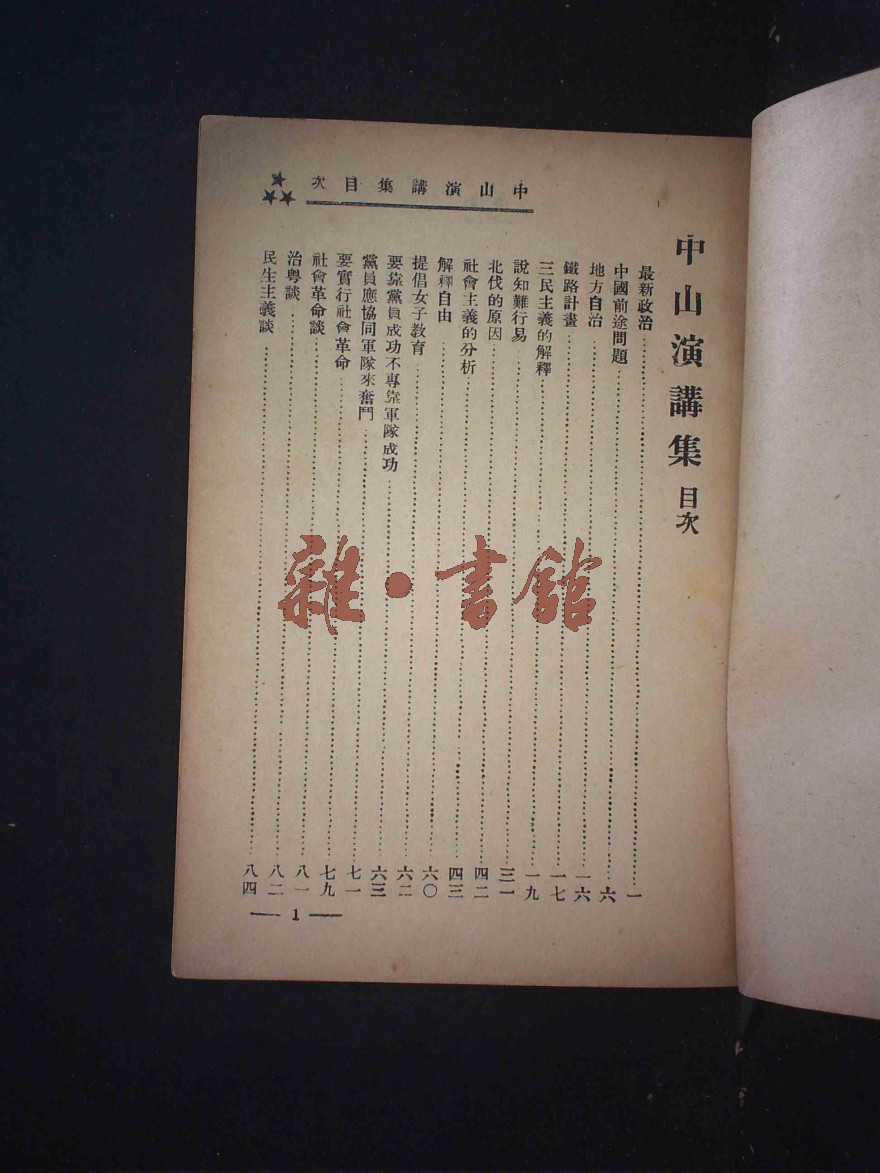 中山演講集目次
中山演講集 目次
最新政治……一
中國前途問題……六
地方自治……一六
鐵路計畫……一七
三民主義的解釋……一九
說知難行易……三一
北伐的原因……四二
社會主義的分析……四三
解釋自由……六〇
提倡女子教育……六二
要靠黨員成功不專靠軍隊成功……六三
黨員應協同軍隊來奮鬥……七一
要實行社會革命……七九
社會革命談……八一
治粵談……八二
民生主義談……八四
— 1 —
雜·書館